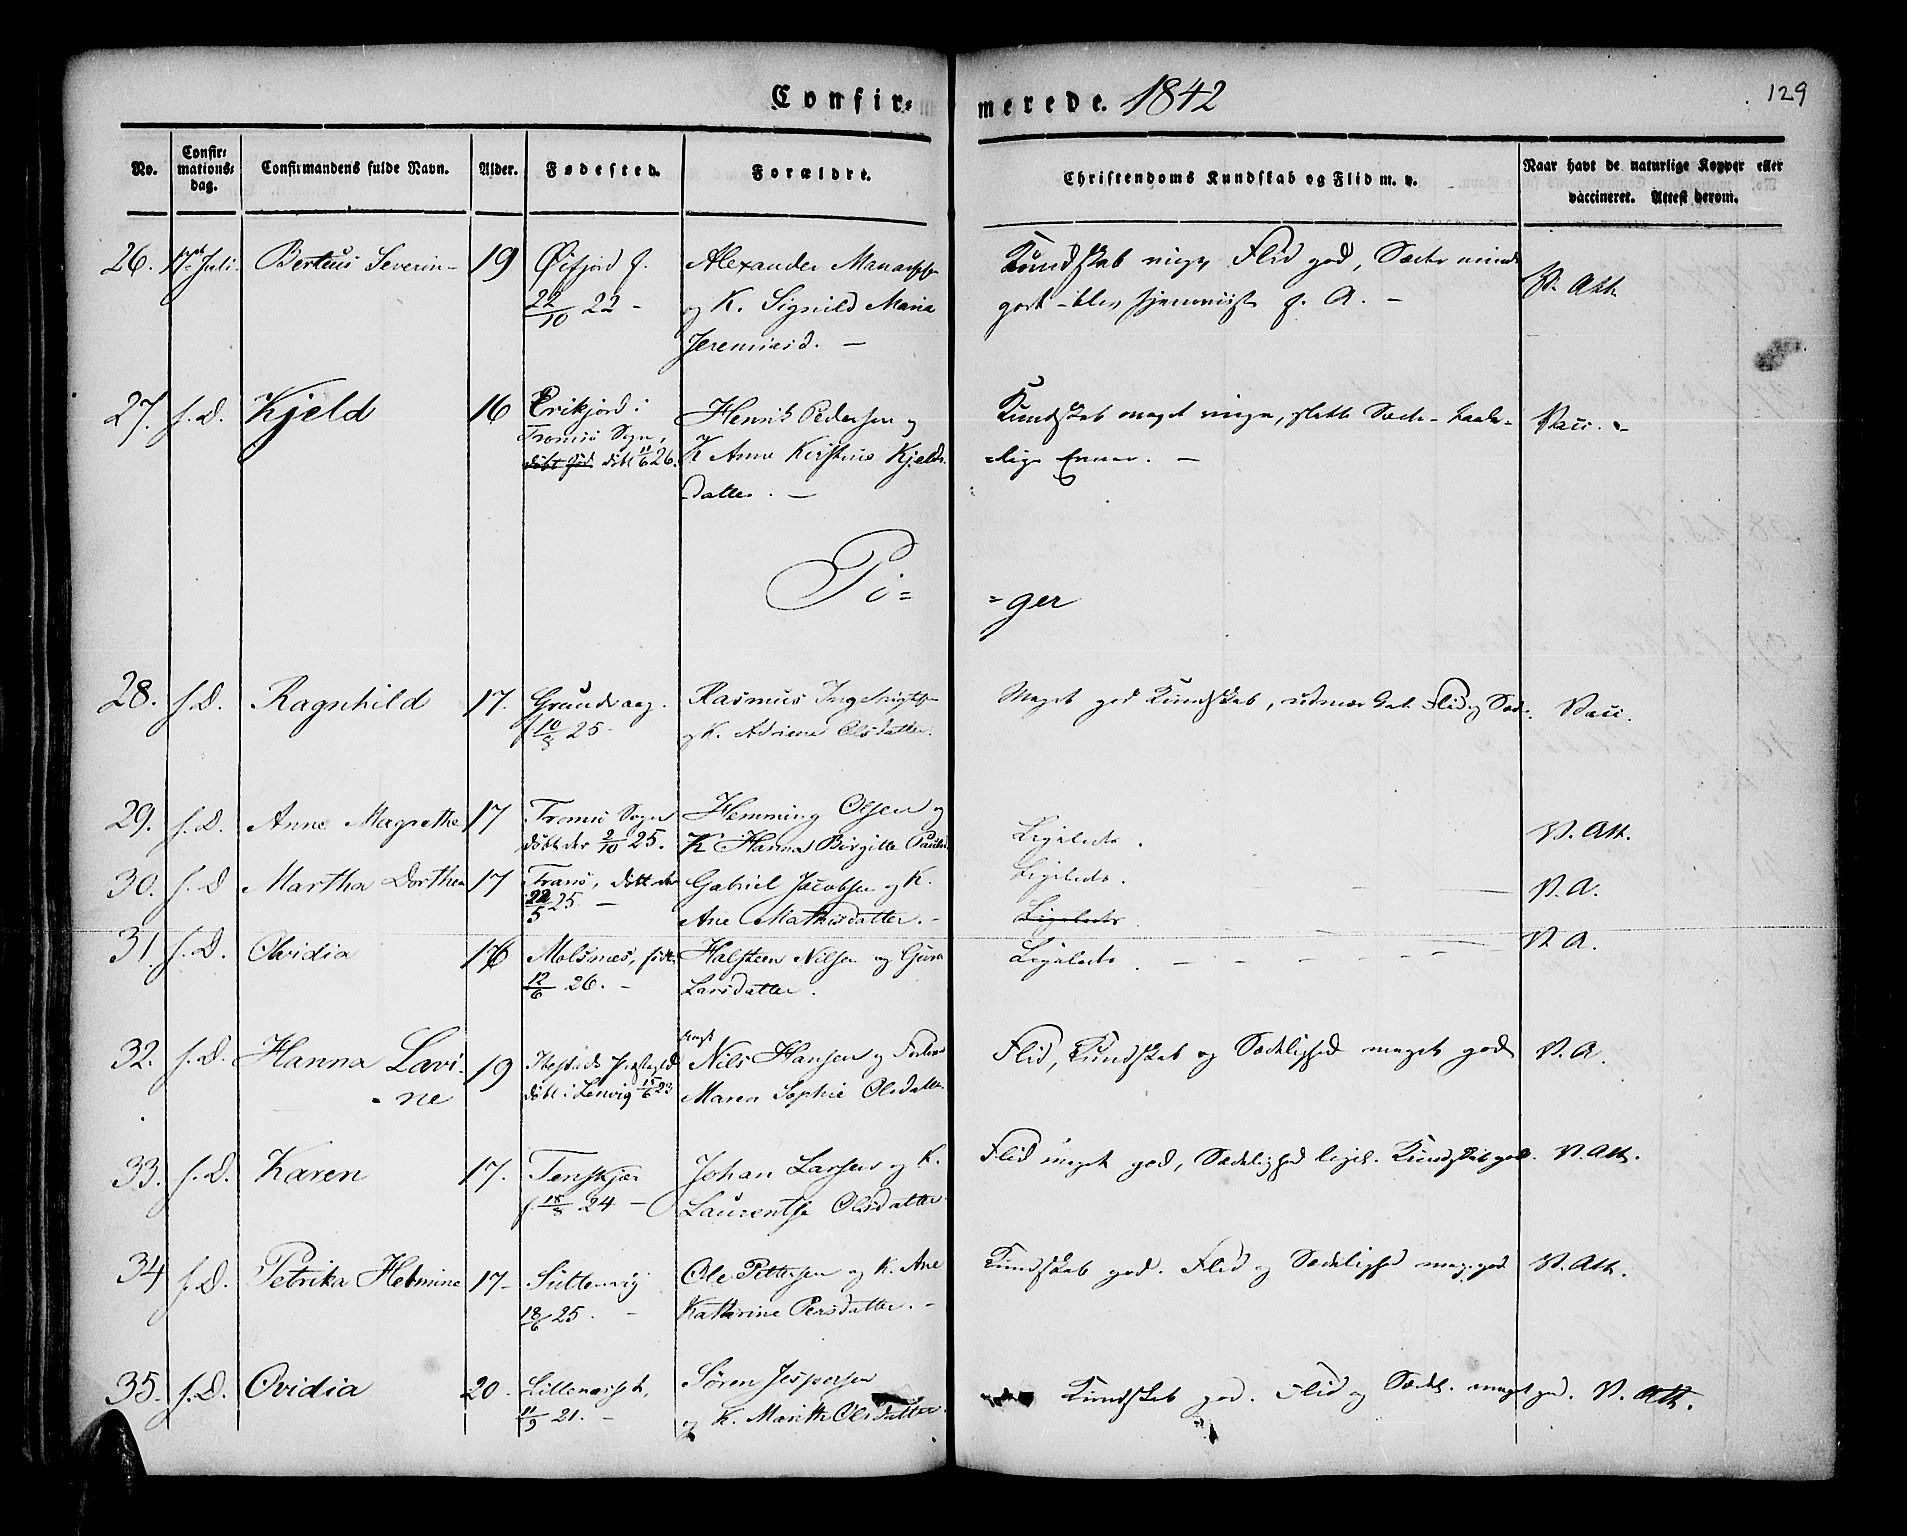 Confir= merede. 1842
129
No.
Confir=
mations=
dag.
Confirmandens fulde Navn.
Alder.
Fødested.
Forældre.
Christendoms Kundskab og Flid m. v.
Naar havt de naturlige Kopper eller
vaccineret. Attest herom.
26. 17de Juli. Berteus Severin 19
f.
22/10 22 -
Alexander
og K. Signild Maria
Jeremiasd. -
Kundskab Flid god, Sæder
godt - blev f. A. -
V. Att.
27. f. D. Kjeld 16
Tromsö Sogn,
döbt 11/6 26.
Henrik Pedersen og
K Anne Kirstine Kjelds
datter. -
Kundskab meget ringe, slette Sæder -
lige Evner. -
Vacc.
Pi=
=ger
28. f. D. Ragnhild 17.
Grundvaag.
f 10/3 25 -
Rasmus
og K. Adriena Olsdatter.
Meget god Kundskab, udmærket Flid og Sæd.
Vacc.
29. f. D. Anne Magrethe 17
Tromsö Sogn
döbt der 2/10 25.
Hemming Olsen og
K Hanna Birgitte
Ligeledes.
V. Att.
30. f. D Martha Dorthea 17
Tranö, döbt der
22/5 25 -
Gabriel Jacobsen og K.
Ane Mathisdatter. -
Ligeledes.
Ligeledes
V. A.
31. f. D. Ovidia 16
Molsnæs, födt
12/6 26. -
Halsteen Nilsen og
Larsdatter.
Ligeledes.
V. A.
32. f. D. Hanna Lavi-
-ne
19
Ibestads Præstegjeld
döbt i Lenvig 15/6 23
Nils Hansen og
Maren Sophie Olsdatter
Flid, Kundskab og Sædelighed meget god
V. A.
33. f. D. Karen 17.
Tenskjær
f 18/8 24 -
Johan Larsen og K.
Laurentse Olsdatter
Flid meget god, Sædelighed ligel. Kundskab god.
V. Att.
34 f. D. Petrika Helmine 17 -
18/6 25. -
Ole Pettersen og K. Ane
Katherine Persdatter. -
Kundskab god. Flid og Sædelighed meg. god
V. Att.
35. f. D. Ovidia 20 -
11/9 21. -
Sören Jespersen
og K. Marithe Olsdatter.
Kundskab god. Flid og Sædel. meget god.
V. Att.